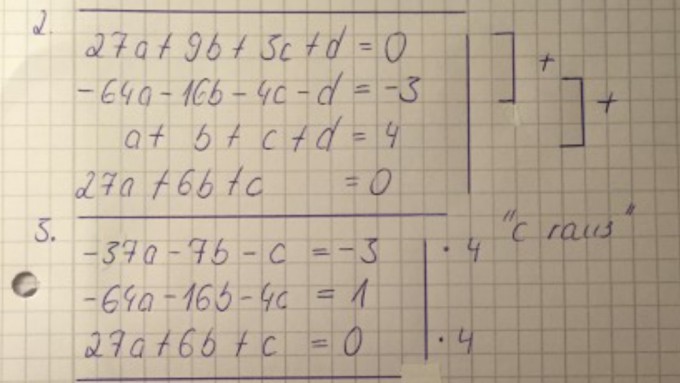 2.
27a + 9b + 3c + d = 0
-64a - 16b - 4c - d = -3 +
a + b + c + d = 4 +
27a + 6b + c = 0
3. "c raus"
-37a - 7b - c = -3 | · 4
-64a - 16b - 4c = 1
27a + 6b + c = 0 | · 4